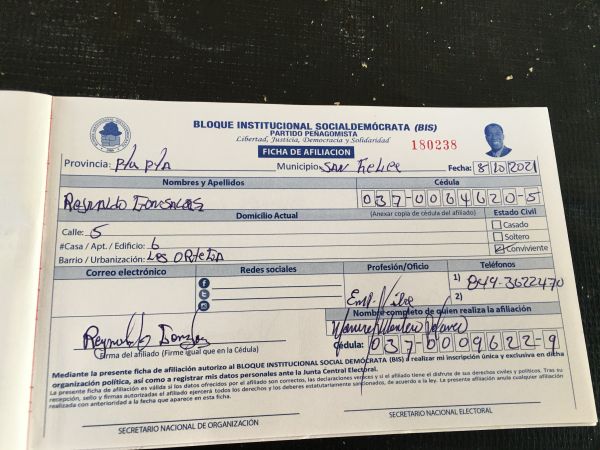 BLOQUE INSTITUCIONAL SOCIALDEMÓCRATA (BIS)
PARTIDO PEÑAGOMISTA
Libertad, Justicia, Democracia y Solidaridad
FICHA DE AFILIACION
180238
Provincia: P/A P/A Municipio: SAN Felipe Fecha: 8/10/2021
Nombres y Apellidos Cédula
Reynaldo Gonsales 037-0064620-5
Domicilio Actual (Anexar copia de cédula del afiliado) Estado Civil
Calle: 5 Casado
#Casa / Apt. / Edificio: 6 Soltero
Barrio / Urbanización: Los Conviviente
Correo electrónico Redes sociales Profesión/Oficio Teléfonos
1) 849-3622470
2)
Emp.
Nombre completo de quien realiza la afiliación
Reynaldo
Firma del afiliado (Firme igual que en la Cédula) Cédula: 037-0009622-9
Mediante la presente ficha de afiliación autorizo al BLOQUE INSTITUCIONAL SOCIALDEMÓCRATA (BIS) a realizar mi inscripción única y exclusiva en dicha
organización política, así como a registrar mis datos personales ante la Junta Central Electoral.
La presente ficha de afiliación es válida si los datos ofrecidos por el afiliado son correctos, las declaraciones veraces y si el afiliado tiene el disfrute de sus derechos civiles y políticos. Tras su
recepción, sello y firmas autorizadas el afiliado ejercerá todos los derechos y los deberes estatutariamente sancionados, de acuerdo a la ley. La presente afiliación anula cualquier afiliación
realizada con anterioridad a la fecha que aparece en esta ficha.
SECRETARIO NACIONAL DE ORGANIZACIÓN SECRETARIO NACIONAL ELECTORAL